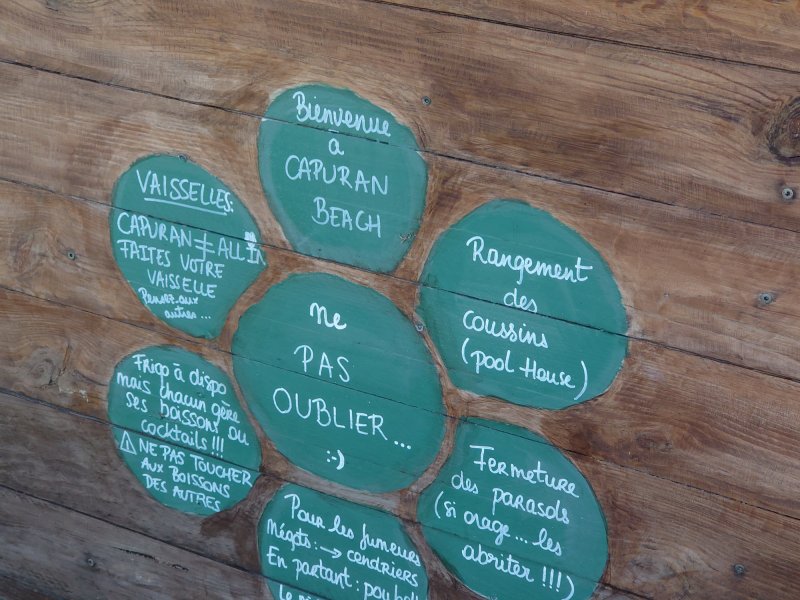 Bienvenue
à
CAPURAN
BEACH
VAISSELLES:
CAPURAN ≠ ALL IN
FAITES VOTRE
VAISSELLE
Pensez aux
autres...
Rangement
des
coussins
(pool House)
Ne
PAS
OUBLIER...
:-)
Frigo à dispo
mais chacun gère
ses boissons ou
cocktails !!!
⚠ NE PAS TOUCHER
AUX BOISSONS
DES AUTRES
Fermeture
des parasols
(si orage... les
abriter !!!)
Pour les fumeurs
Mégots: → cendriers
En partant: poubel